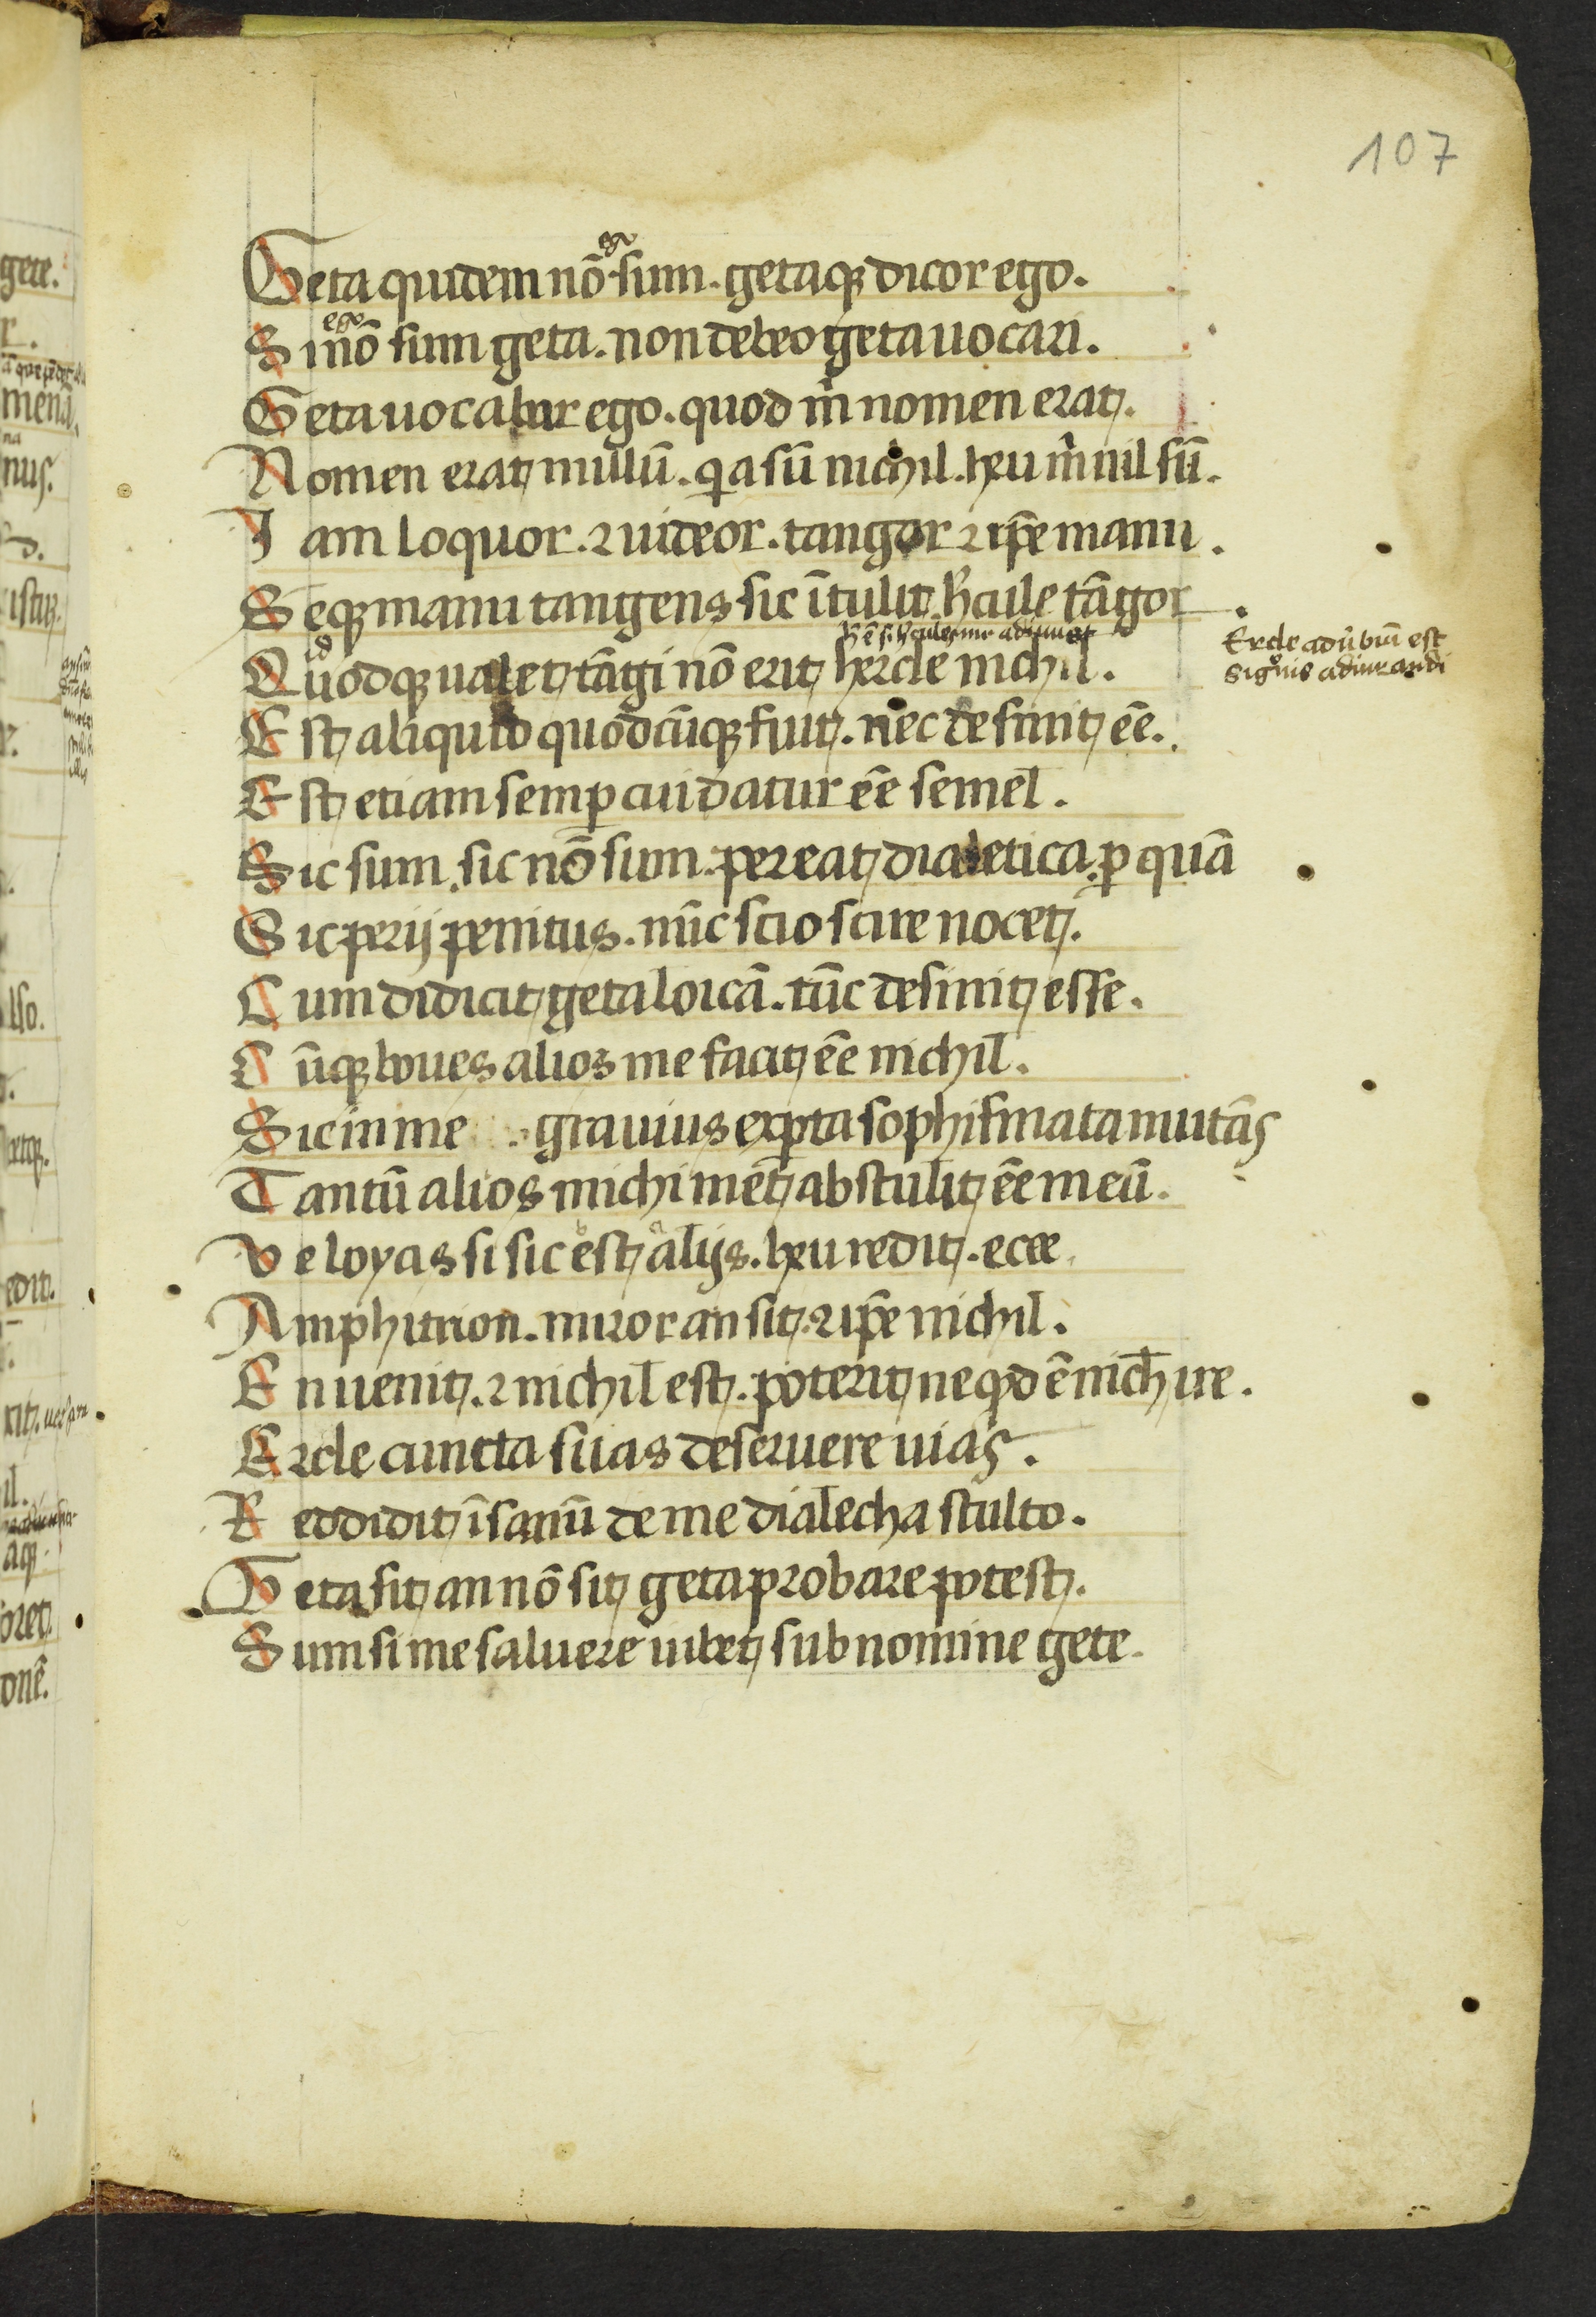 107
ego
Geta quidem nō sum . getaqꝫ dicor ego .
ego
Si nō sum geta . non debeo geta uocari .
Geta uocabar ego . quod m̄ nomen erat .
Nomen erat nullū . qͥa sū nichil . heu m̄ nil sū .
Iam loquor . ⁊ uideor . tangor ⁊ ip̄e manu .
Seqꝫ manu tangens sic ītulit . h̄cule tāgor
id
Quodqꝫ ualet tāgi nō erit hercle nichil .
Ercle adūbiū est
sigͦnis adiurandi
Est aliquid quodcūqꝫ fuit . nec desinit ēe .
Est etiam semꝑ cui datur ēe semel .
Sic sum . sic nō sum . pereat dialetica . ꝑ quā
Sic perij penitus . nūc scio scire nocet .
Cum didicit geta loicā . tūc desinit esse .
Cūqꝫ boues alios me facit ēe nichil .
Sic in me . grauius exꝑta sophismata mutās
Tantū alios michi mēt abstulit ēe meū .
b a
Ve loyas si sic est alijs . heu redit . ecce
Amphitrion . miror an sit . ⁊ ip̄e nichil .
En uenit . ⁊ nichil est . poterit ne qͥd ē nich̄ ire .
Ercle cuncta suas deseruere uias .
Reddidit īsanū de me dialecha stulto .
Geta sit an nō sit geta probare potest .
Sum si me saluere iubet sub nomine gete .